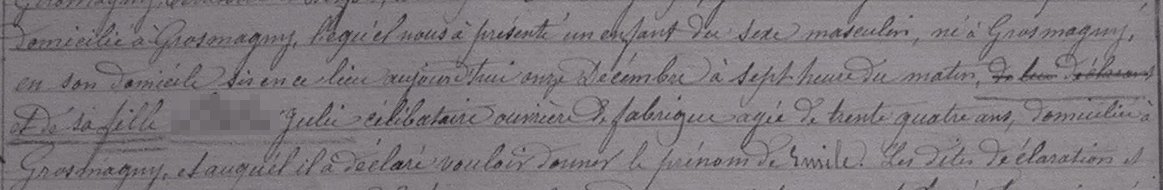 domicilié à Grosmagny, lequ'el nous à présenté un enfant du sexe masculin, né à Grosmagny,
en son domicile sis en ce lieu aujourd'hui onze Décembre à sept heure du matin, de lui déclarant
et de sa fille Julie célibataire ouvrière de fabrique agée de trente quatre ans, domiciliée à
Grosmagny, et auquel il à déclaré vouloir donner le prénom de Emile. Les dites déclaration et